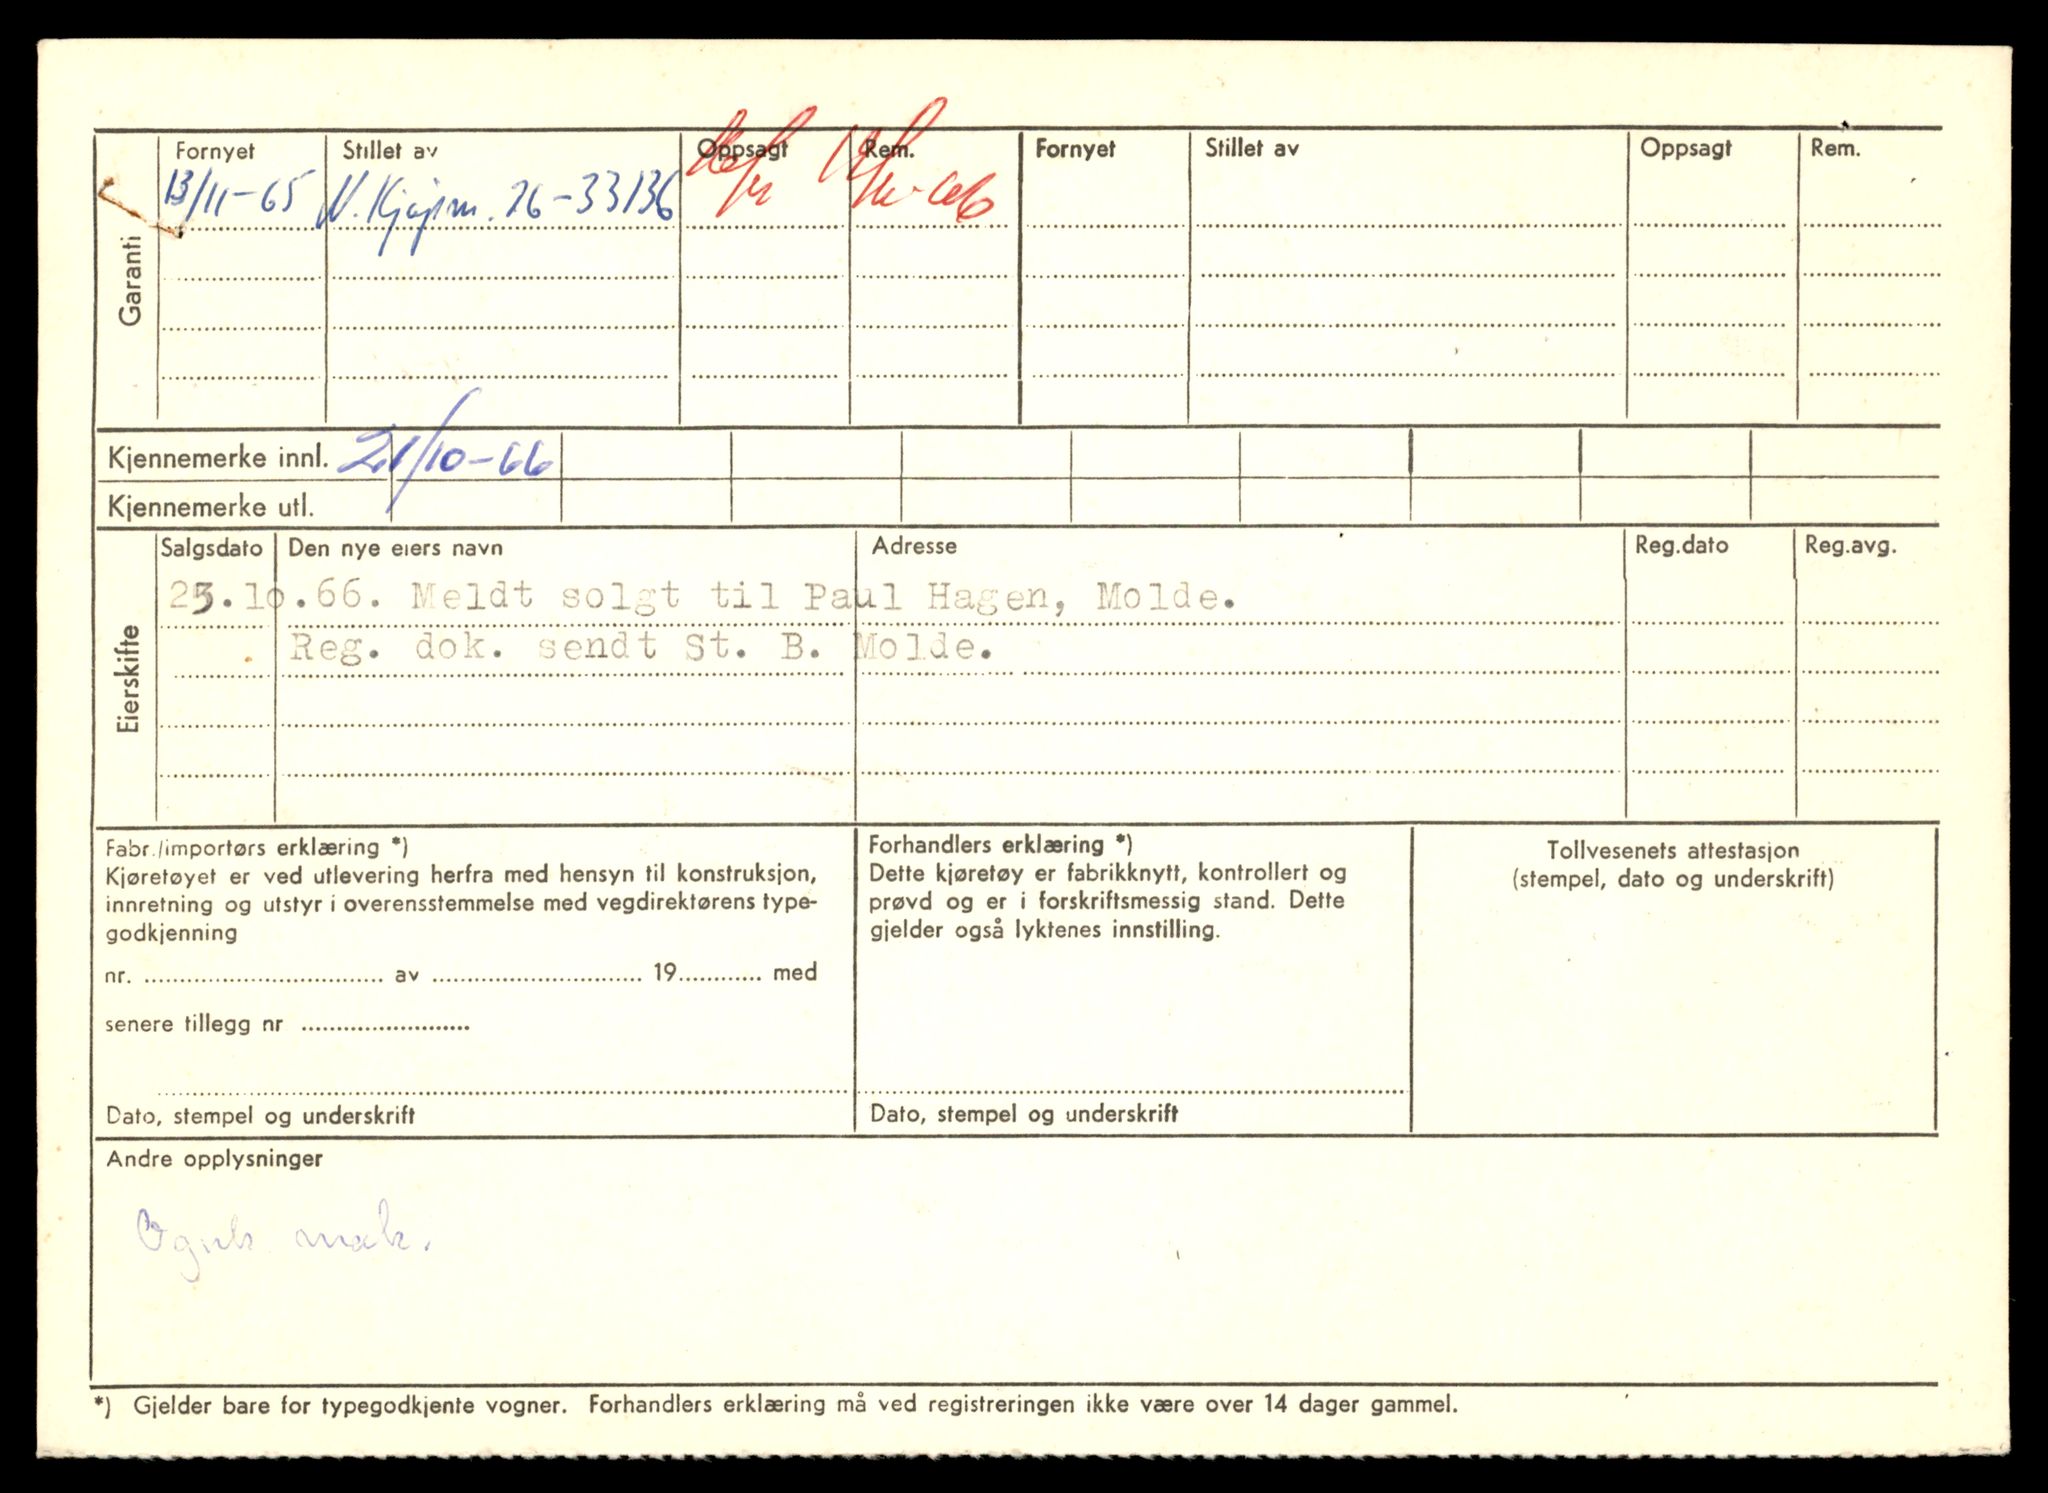 Garanti
Fornyet Stillet av Oppsagt Rem. Fornyet Stillet av Oppsagt Rem.
13/11-65 26-33136
Kjennemerke innl. 21/10-66
Kjennemerke utl.
Eierskifte
Salgsdato Den nye eiers navn Adresse Reg.dato Reg.avg.
25.10.66. Meldt solgt til Paul Hagen, Molde.
Reg. dok. sendt St. B. Molde.
Fabr./importørs erklæring *)
Kjøretøyet er ved utlevering herfra med hensyn til konstruksjon,
innretning og utstyr i overensstemmelse med vegdirektørens type-
godkjenning
nr. .......... av .......... 19.......... med
senere tillegg nr ..........
Dato, stempel og underskrift
Forhandlers erklæring *)
Dette kjøretøy er fabrikknytt, kontrollert og
prøvd og er i forskriftsmessig stand. Dette
gjelder også lyktenes innstilling.
Dato, stempel og underskrift
Tollvesenets attestasjon
(stempel, dato og underskrift)
Andre opplysninger
*) Gjelder bare for typegodkjente vogner. Forhandlers erklæring må ved registreringen ikke være over 14 dager gammel.